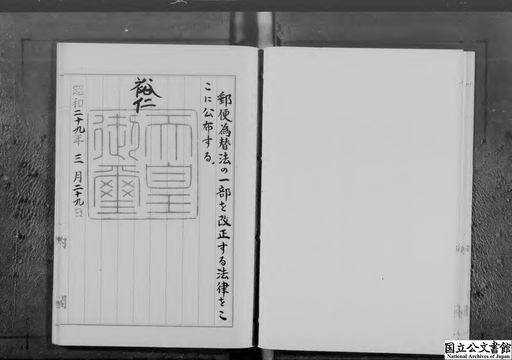 郵便為替法の一部を改正する法律をこ
こに公布する。
裕仁
天皇
御璽
昭和二十九年三月二十九日
内
閣
国立公文書館
National Archives of Japan